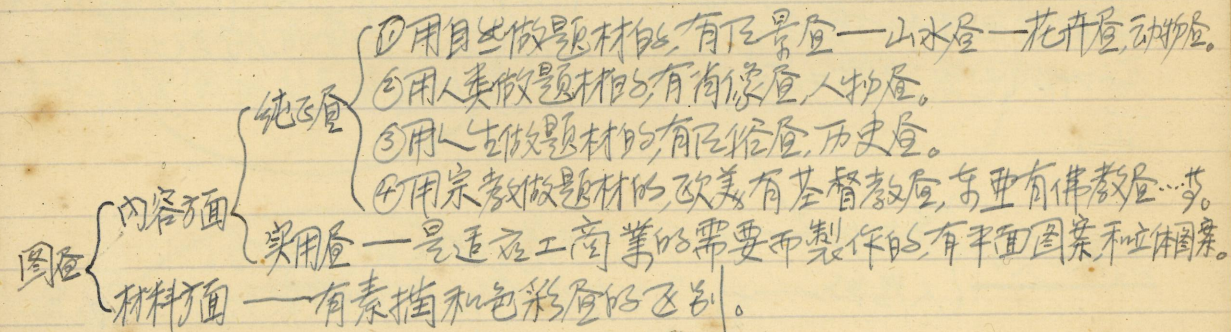 ①用自然做题材的,有风景画—山水画—花卉画,动物画。
②用人类做题材的,有肖像画,人物画。
纯正画
③用人生做题材的,有风俗画,历史画。
④用宗教做题材的,欧美有基督教画,东亚有佛教画…等。
内容方面
实用画—是适应工商業的需要而製作的,有平面图案,和立体图案。
图画
材料方面——有素描和色彩画的区别。